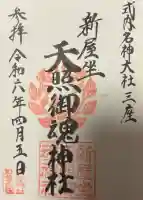 式内名神大社三座
新屋坐
天照御魂神社
参拝 令和六年四月五日